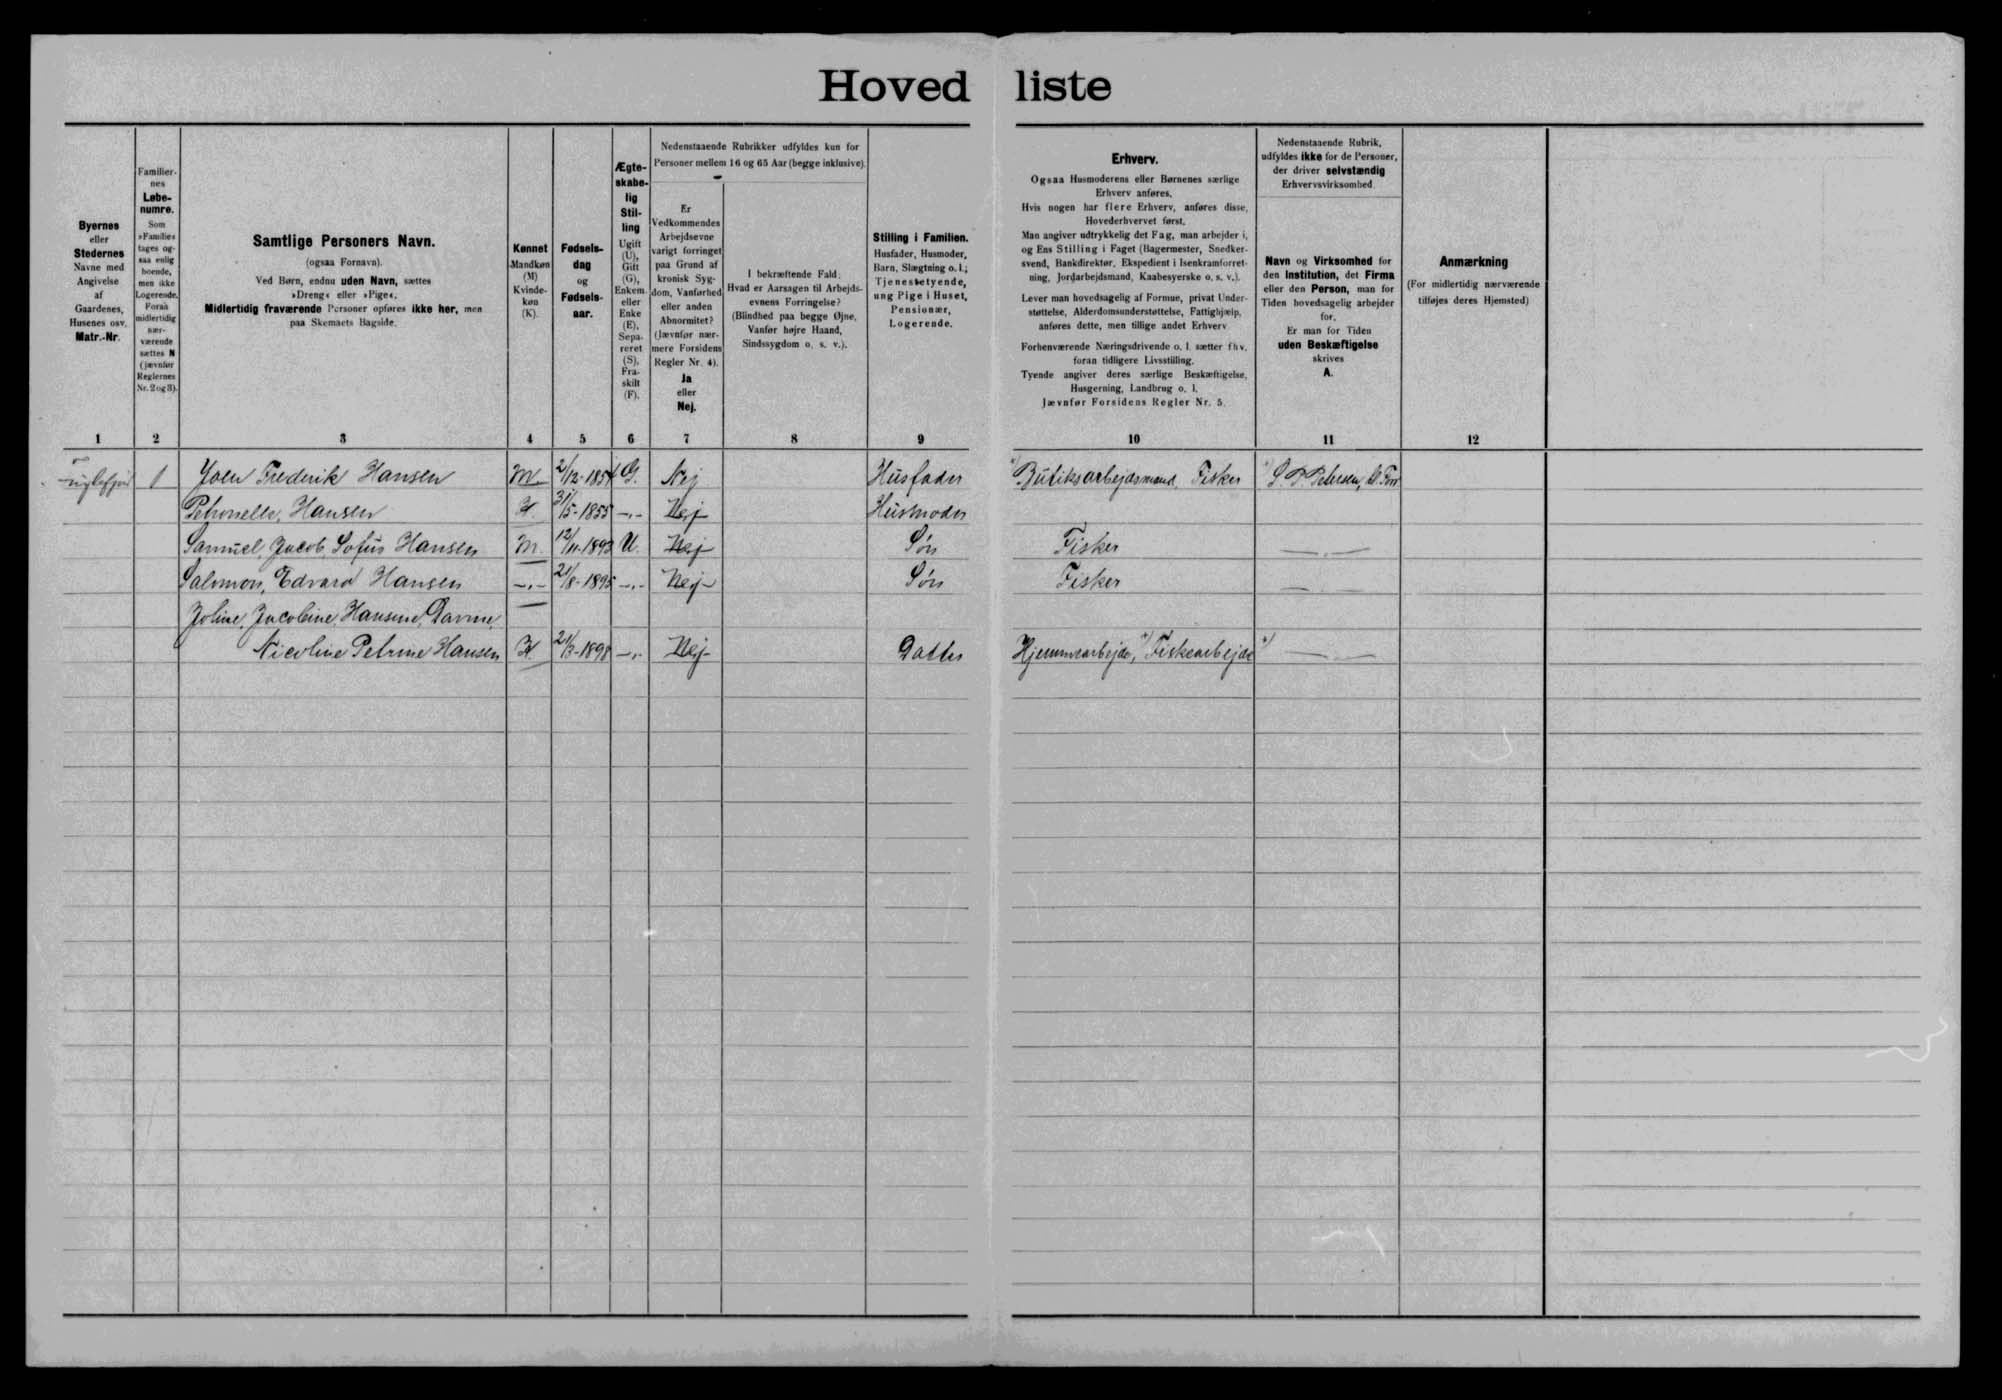 Hovedliste
Byernes
eller
Stedernes
Navne med
Angivelse
af
Gaardenes,
Husenes osv.
Matr.-Nr.
Familier-
nes
Løbe-
numre.
Som
»Familie«
tages og-
saa enlig
boende,
men ikke
Logerende.
Foran
midlertidig
nær-
værende
sættes N
(jævnfør
Reglernes
Nr. 2 og 3).
Samtlige Personers Navn.
(ogsaa Fornavn).
Ved Børn, endnu uden Navn, sættes
»Dreng« eller »Pige«.
Midlertidig fraværende Personer opføres ikke her, men
paa Skemaets Bagside.
Kønnet
Mandkøn
(M)
Kvinde-
køn
(K).
Fødsels-
dag
og
Fødsels-
aar.
Ægte-
skabe-
lig
Stil-
ling
Ugift
(U),
Gift
(G),
Enkem.
eller
Enke
(E),
Sepa-
reret
(S),
Fra-
skilt
(F).
Nedenstaaende Rubrikker udfyldes kun for
Personer mellem 16 og 65 Aar (begge inklusive).
Er
Vedkommendes
Arbejdsevne
varigt forringet
paa Grund af
kronisk Syg-
dom, Vanførhed
eller anden
Abnormitet?
(Jævnfør nær-
mere Forsidens
Regler Nr. 4).
Ja
eller
Nej.
I bekræftende Fald:
Hvad er Aarsagen til Arbejds-
evnens Forringelse?
(Blindhed paa begge Øjne,
Vanfør højre Haand,
Sindssygdom o. s. v.).
Stilling i Familien.
Husfader, Husmoder,
Barn, Slægtning o. l.;
Tjenestetyende,
ung Pige i Huset,
Pensionær,
Logerende.
Erhverv.
Ogsaa Husmoderens eller Børnenes særlige
Erhverv anføres.
Hvis nogen har flere Erhverv, anføres disse,
Hovederhvervet først.
Man angiver udtrykkelig det Fag, man arbejder i,
og Ens Stilling i Faget (Bagermester, Snedker-
svend, Bankdirektør, Ekspedient i Isenkramforret-
ning, Jordarbejdsmand, Kaabesyerske o. s. v.).
Lever man hovedsagelig af Formue, privat Under-
støttelse, Alderdomsunderstøttelse, Fattighjælp,
anføres dette, men tillige andet Erhverv
Forhenværende Næringsdrivende o. l. sætter fhv.
foran tidligere Livsstilling.
Tyende angiver deres særlige Beskæftigelse,
Husgerning, Landbrug o. l.
Jævnfør Forsidens Regler Nr. 5.
Nedenstaaende Rubrik,
udfyldes ikke for de Personer,
der driver selvstændig
Erhvervsvirksomhed.
Navn og Virksomhed for
den Institution, det Firma
eller den Person, man for
Tiden hovedsagelig arbejder
for.
Er man for Tiden
uden Beskæftigelse
skrives
A.
Anmærkning
(For midlertidig nærværende
tilføjes deres Hjemsted)
1 2 3 4 5 6 7 8 9 10 11 12
Fuglefjord 1 Joen Frederik Hansen M. 2/12-1854 G. Nej Husfader Butiksarbejdsmand, Fisker S. P. Petersen,
Petronelle, Hansen K. 31/5-1855 -„- Nej Husmoder
Samuel, Jacob, Sofus Hansen M. 12/11-1893 U. Nej Søn Fisker -„-
Salomon, Edvard Hansen -„- 21/8-1895 -„- Nej Søn Fisker -„-
Joline, Jacobine, Hansine, Davine,
Nicoline Petrine Hansen K. 21/3-1898 -„- Nej Datter Hjemmearbejde, Fiskearbejde -„-